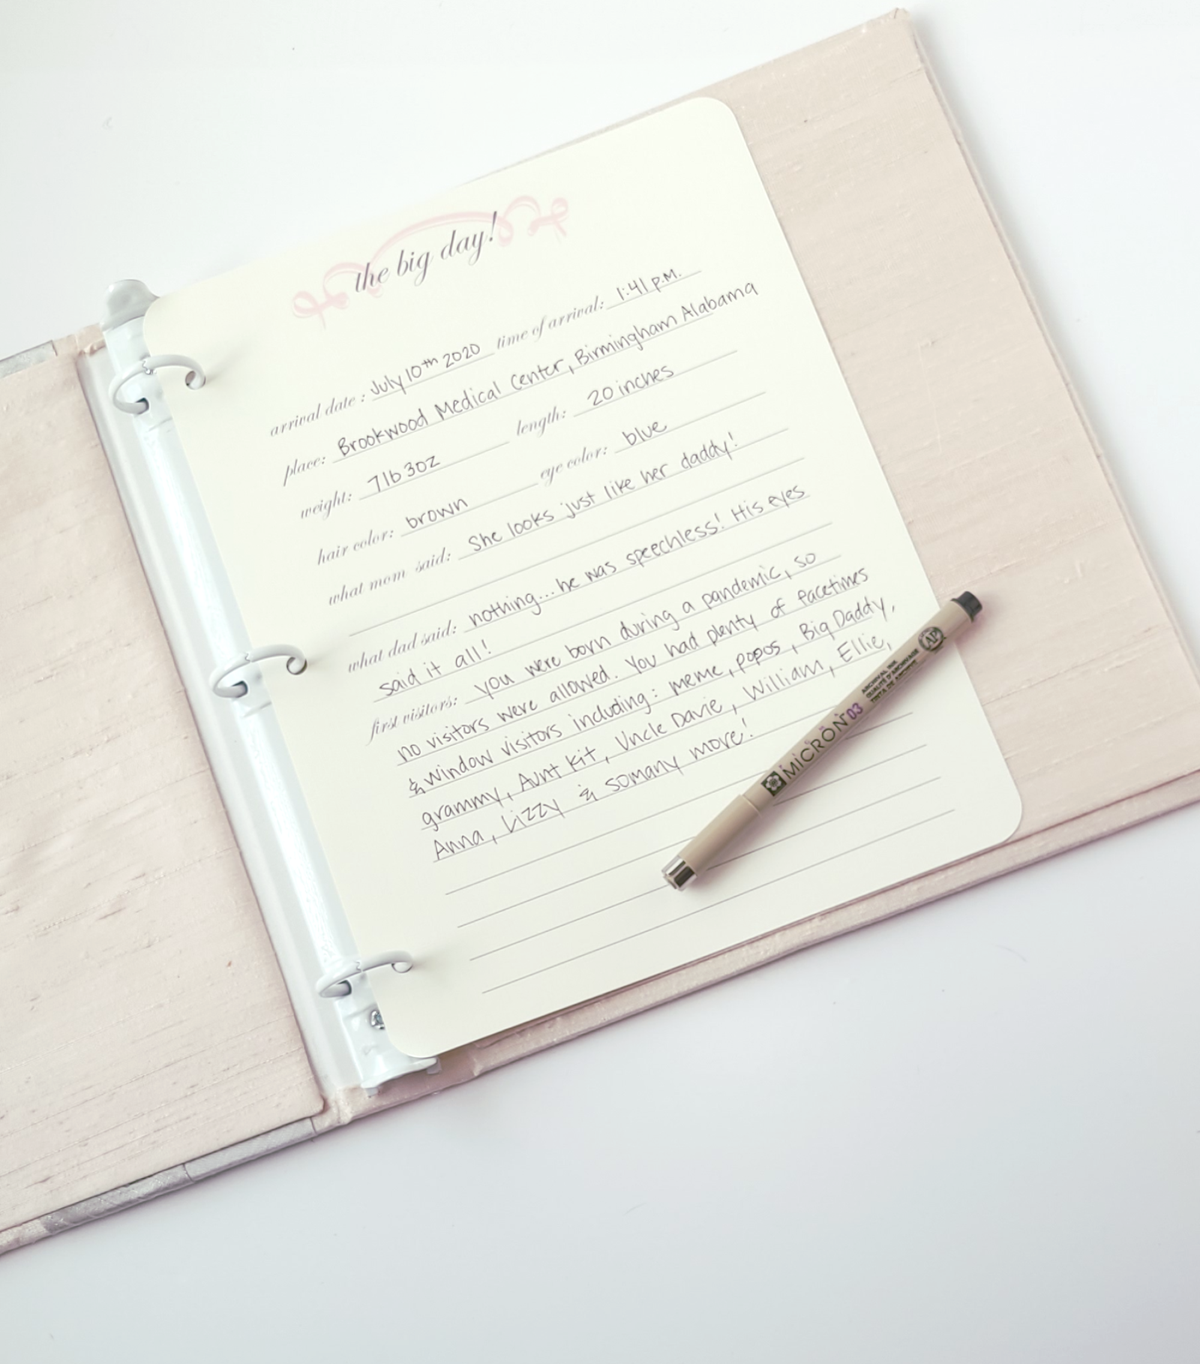 the big day!
arrival date: July 10th 2020 time of arrival: 1:41 p.m.
place: Brookwood Medical Center, Birmingham Alabama
weight: 7lb 3oz length: 20 inches
hair color: brown eye color: blue
what mom said: She looks just like her daddy!
what dad said: nothing... he was speechless! His eyes
said it all!
first visitors: you were born during a pandemic, so
no visitors were allowed. You had plenty of facetimes
& window visitors including: meme, popos, Big Daddy,
grammy, Aunt Kit, Uncle Davie, William, Ellie,
Anna, Lizzy & somany more!
MICRON 03
AP
ARCHIVAL INK